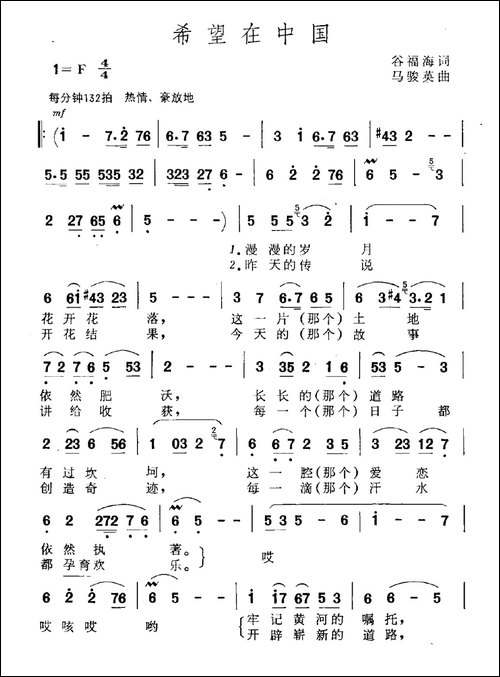 希望在中国
1=F 4/4
谷福海词
马骏英曲
每分钟132拍 热情、豪放地
mf
(i - 7.2 76 | 6.7 63 5 - | 3 i 6.7 63 | #43 2 - -
5.5 55 535 32 | 323 27 6 - | 6 2 2 76 | 6 5 - 3
2 27 65 6 | 5 - - -) | 5 55 5 3 2 | i - - 7
1.漫漫的岁月
2.昨天的传说
6 6i #43 23 | 5 - - - | 3 7 6.7 65 | 6 3 #4 3.2 1
花开花落，这一片(那个)土地
开花结果，今天的(那个)故事
72 76 5 53 | 2 - - - | 3 35 2 16 | 2 35 5 -
依然肥沃，长长的(那个)道路
讲给收获，每一个(那个)日子都
2 23 6 56 | 1 03 2 7 | 6 67 5 3 | 3 23 12 7
有过坎坷，这一腔(那个)爱恋
创造奇迹，每一滴(那个)汗水
6 2 272 76 | 6 5 - - | 535 - 6 | i - - 7
依然执著。哎
都孕育欢乐。
6 2 2 76 | 6 5 - - | i i7 67 5 | 3 5 5 -
哎咳哎哟 牢记黄河的嘱托，
开辟崭新的道路，